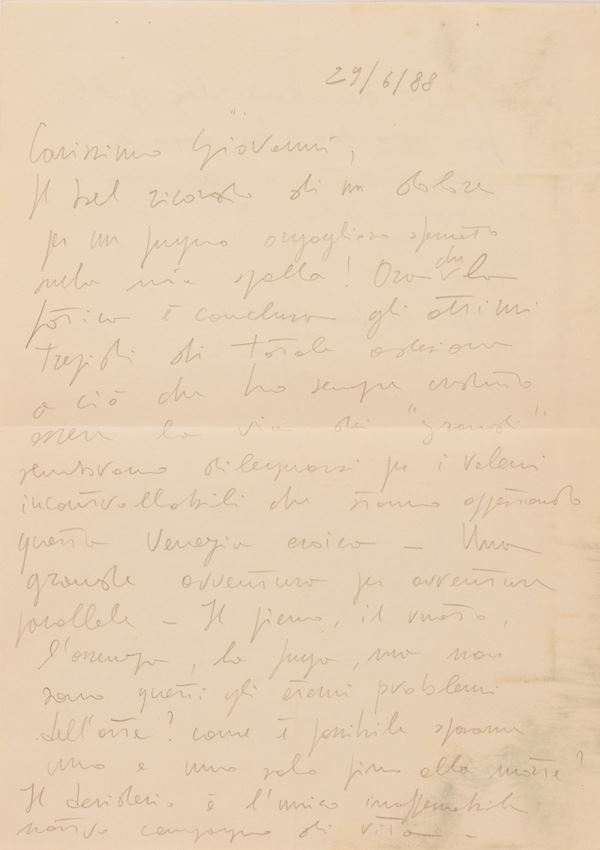 29/6/88
Carissimo Giovanni,
Il bel ricordo di un dolore
per un pugno orgoglioso sferrato
sulla mia spalla! Ora che la
fatica è conclusa gli attimi
trepidi di totale adesione
a ciò che ho sempre creduto
essere la via dei "grandi"
sembrano dileguarsi per i veleni
incontrollabili che stanno
questa Venezia eroica – Una
grande avventura per avventure
parallele – Il pieno, il vuoto,
l'assenza, la fuga, ma non
sono questi gli eterni problemi
dell'arte? come è possibile
uno e uno solo fino alla morte?
Il desiderio è l'unico inafferrabile
nostra compagna di vita –